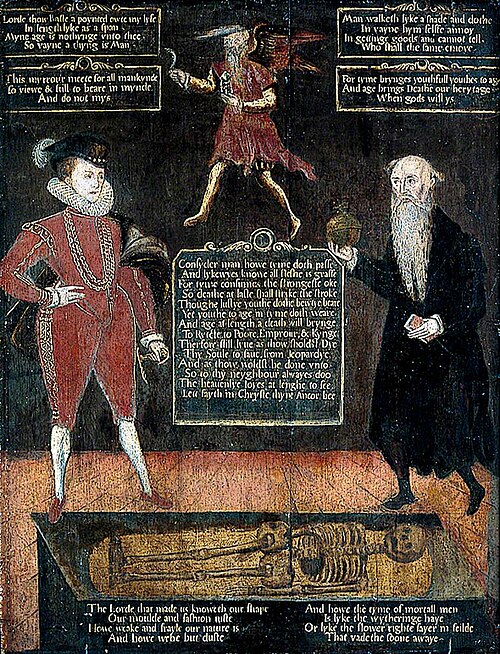 Lorde thow haste a poynted owte my lyfe
In lengthe lyke as a span
Myne age is nothynge vnto thee
So vayne a thyng is Man
This myrrour meete for all mankynde
so viewe & still to beare in mynde
And do not mys
Man walketh lyke a shade and dothe
In vayne hym selffe annoy
In gettinge goods and cannot tell
Who shall the same enioye
For tyme brynges youthfull youthes to age
And age brings Deathe our herytage
When gods will ys
Consyder man howe tyme doth passe
And lykewyes knowe all fleshe is grasse
For tyme consumes the strongeste oke
So deathe at laste shall stryke the stroke
Thoughe lustye youthe dothe bewtye beare
Yet youthe to age in tyme doth weare
And age at length a death will brynge
To Ryche, to Poore, Emproure, & Kynge
Therfore still lyue as thow sholdst Dye
Thy Soule to saue, from Jeopardye
And as thow woldst be done vnto
So to thy neyghbour alwayes doo
The heavenlye Joyes at lenghe to see
Lett fayth in Chryste thyne Ancor bee
The Lorde that made us knoweth our shape
Our moulde and fashion iuste
Howe weake and frayle our nature is
And howe we be but duste
And howe the tyme of mortall men
Is lyke the wytheringe haye
Or lyke the flower righte fayer in feilde
That vadethe soone awaye